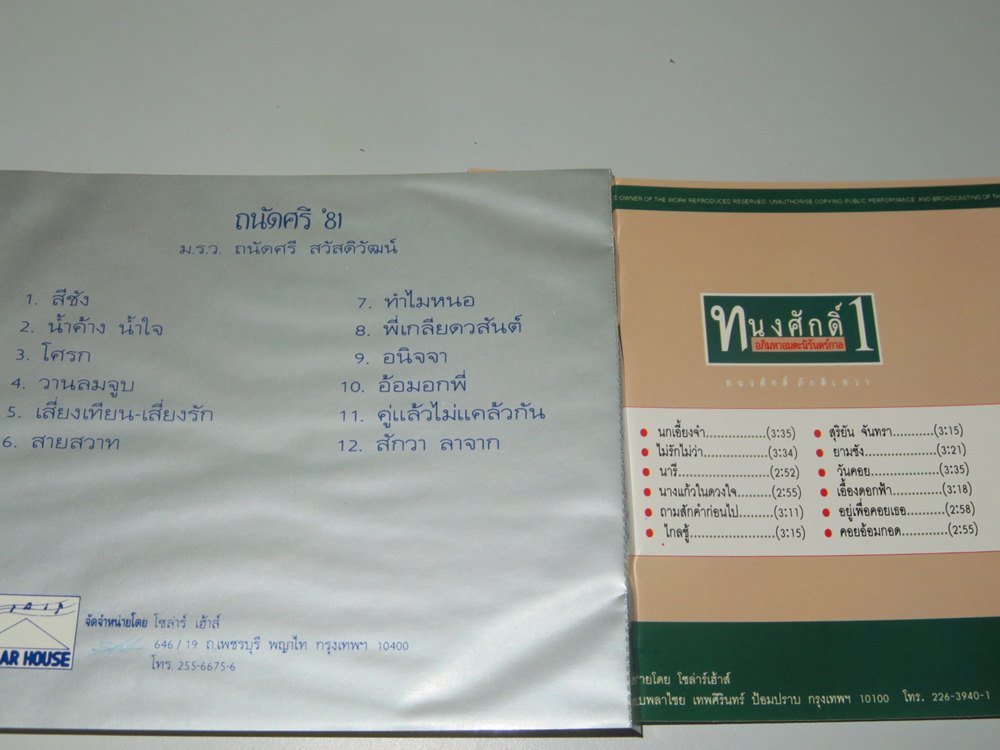 ถนัดศรี '81
ม.ร.ว. ถนัดศรี สวัสดิวัฒน์
1. สีชัง
2. น้ำค้าง น้ำใจ
3. โศรก
4. วานลมจูบ
5. เสี่ยงเทียน-เสี่ยงรัก
6. สายสวาท
7. ทำไมหนอ
8. พี่เกลียดวสันต์
9. อนิจจา
10. อ้อมอกพี่
11. คู่แล้วไม่แคล้วกัน
12. สักวา ลาจาก
AR HOUSE
จัดจำหน่ายโดย โซล่าร์ เฮ้าส์
646/19 ถ.เพชรบุรี พญาไท กรุงเทพฯ 10400
โทร. 255-6675-6
OWNER OF THE WORK REPRODUCED RESERVED. UNAUTHORISE COPYING, PUBLIC PERFORMANCE, AND BROADCASTING OF
ทนงศักดิ์ 1
อภิมหาอมตะนิรันดร์กาล
ทนงศักดิ์ ภักดีเทวา
นกเอี้ยงจ๋า...............(3:35)
ไม่รักไม่ว่า................(3:34)
นารี.....................(2:52)
นางแก้วในดวงใจ........(2:55)
ถามสักคำก่อนไป........(3:11)
ไกลชู้....................(3:15)
สุริยัน จันทรา..........(3:15)
ยามชัง.................(3:21)
วันคอย................(3:35)
เอื้องดอกฟ้า............(3:18)
อยู่เพื่อคอยเธอ.........(2:58)
คอยอ้อมกอด...........(2:55)
ายโดย โซล่าร์เฮ้าส์
บพลาไชย เทพศิรินทร์ ป้อมปราบ กรุงเทพฯ 10100 โทร. 226-3940-1